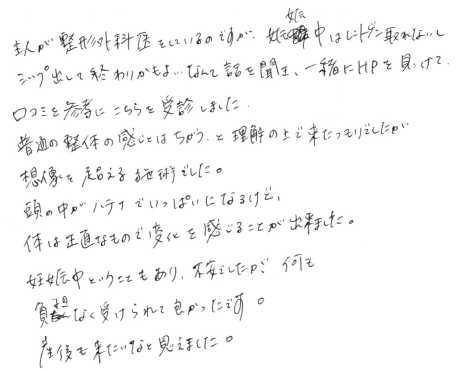 主人が整形外科医をしているのですが、妊娠中はレントゲン取れないし
シップ出して終わりかもよ…なんて話を聞き、一緒にHPを見つけて、
口コミを参考にこちらを受診しました。
普通の整体の感じとはちがう、と理解の上で来たつもりでしたが
想像を超える施術でした。
頭の中がハテナでいっぱいになるけど、
体は正直なもので変化を感じることが出来ました。
妊娠中ということもあり、不安でしたが、何も
負担なく受けられて良かったです。
産後も来たいなと思えました。